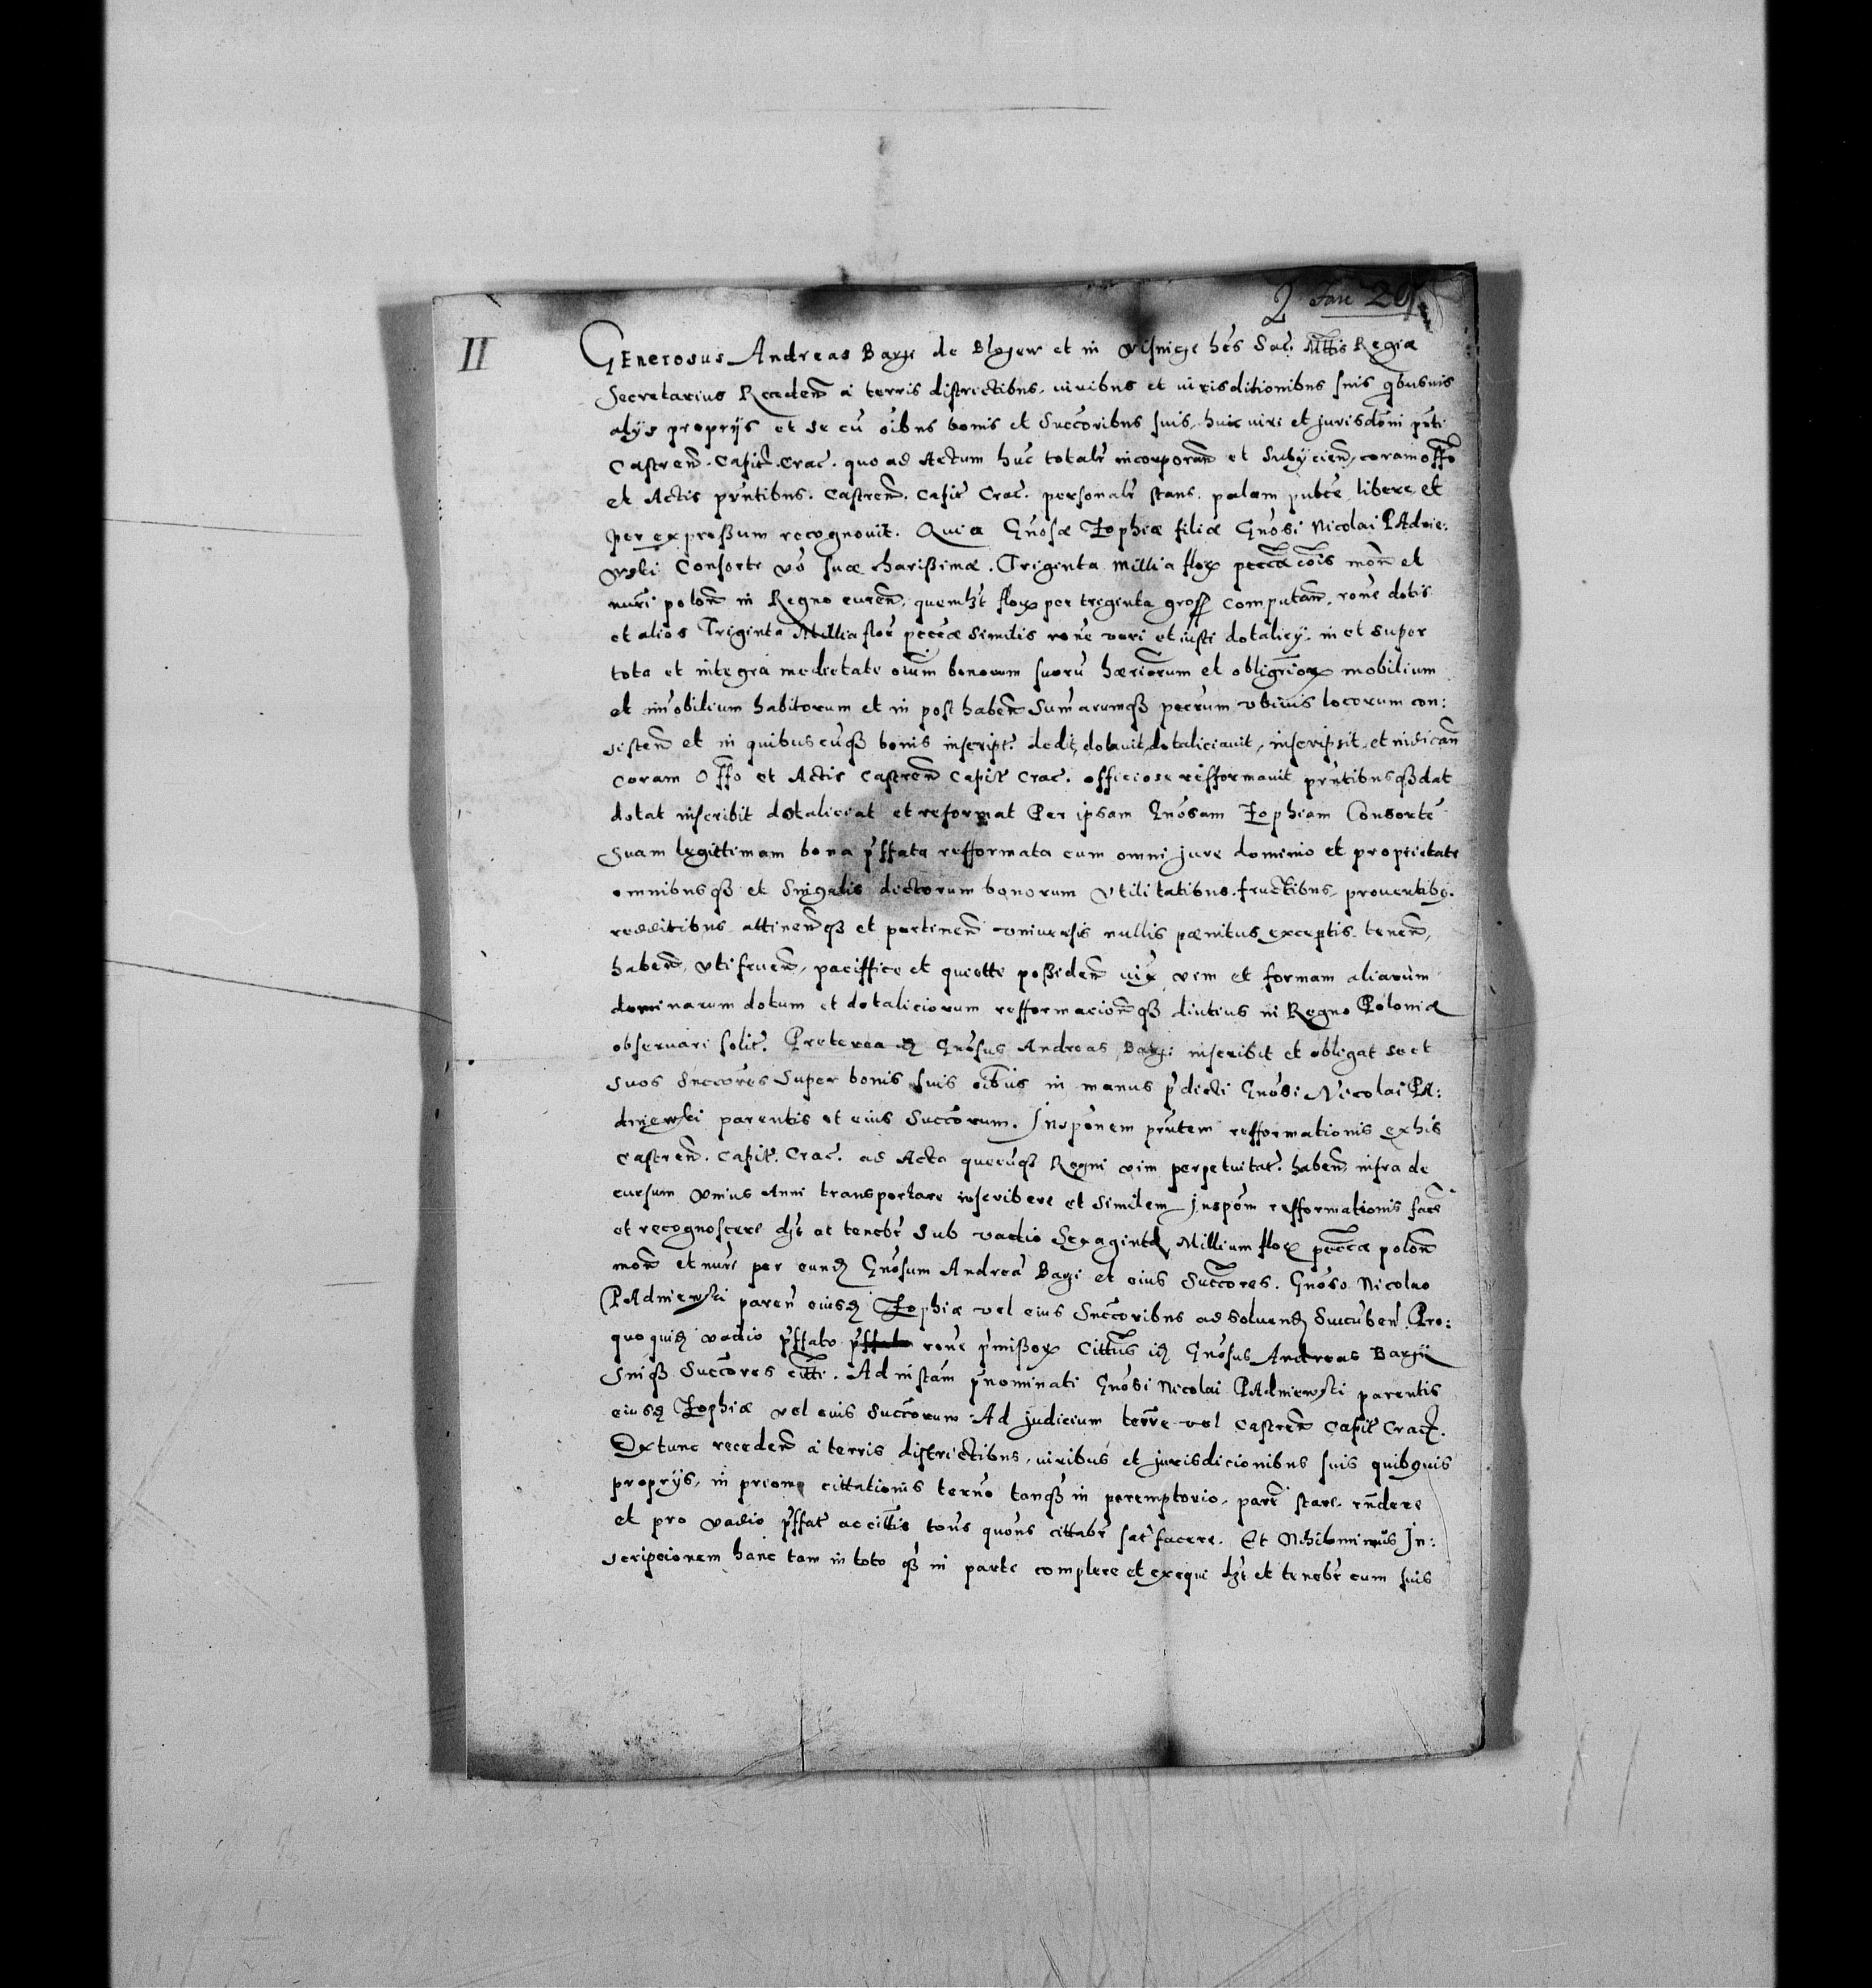 II
GEnerosus Andreas Barzi de Blozew et in Visnicze hẽs Sac. Mttis Regiæ
Secretarius Recedeñ a terris districtibus, iuribus et iurisditionibus suis qbusuis
alijs proprijs et se cũ oĩbus bonis et Succoribus suis, huic iuri et jurisdõni pñti
Castreñ. Capit. Crac. quo ad Actum hũc totalr incorporañ et Subijcień, coram offo
et Actis pñtibus. Castreñ. Capit. Crac. personalr stans. palam pubce, libere, et
per expressum recognouit. Quia Gñosæ Zophiæ filiæ Gñosi Nicolai PAdnie:
wski Consorte võ suæ charissimæ. Triginta Millia flor peccæ cõis moñ et
nũri poloñ in Regno cureñ, quemlzt flor per triginta gross computañ, rõne dotis
et alios Triginta Millia flor peccæ Similis rõne veri et iusti dotalicij. in et super
tota et integra medietate oium bonorum suorũ hæriorum et obligriõr mobilium
et im̃obilium habitorum et in post habeñ Sum̃arumqß pecrum vbiuis locorum con:
sisteñ et in quibuscũqß bonis inscript. dedit, dotauit, dotaliciauit, inscripsit, et
coram Offo et Actis Castreñ Capit Crac. officiose refformauit pñtibusqß dat
dotat inscribit dotaliciat et reformat Per ipsam Gñosam Zophiam Consortẽ
Suam legittimam bona pffata refformata cum omni jure dominio et proprietate
omnibusqß et Singulis dictorum bonorum Vtilitatibus. fructibus, prouentibs.
redditibus attineñqß et pertineñ vniuersis nullis pænitus exceptis teneñ,
habeñ, vti frueñ, paciffice et quiette possideñ iux vim et formam aliarum
dominarum dotum et dotaliciorum refformacioñqß diutius in Regno Poloniæ
obseruari solit. Preterea Gñosus Andreas Barzi inscribit et obligat se et
suos Succores Super bonis suis oĩbus in manus pdicti Gñosi Nicolai PA:
dniewski parentis et eius Succorum. Inspõnem pñtem refformationis ex his
Castreñ. Capit. Crac. ad Acta quecũqß Regni vim perpetuitat. habeñ infra de
cursum Vnius Anni transportare inscribere et Similem Inspõm refformationis facẽ
et recognoscere dzt et tenebr Sub vadio Sexaginta Millium flor peccæ poloñ
moñ et nũri per eund Gñosum Andreã Barzi et eius Succores. Gñoso Nicolao
PAdniewski pareñ eiusd Zophiæ vel eius Succoribus ad soluend Succubeñ. Pro:
quo quid vadio pffato rõne pmissor Cittus id Gñosus Andreas Barzij
suiqß Succores citti. Ad instam pnominati Gñosi Nicolai PAdniewski parentis
eiusd Zophiæ vel euis Succorum Ad judicium terre vel Castreñ Capit Crac.
Extunc recedeñ a terris districtibus, iuribus et jurisdicionibus suis quibusuis
proprijs, in primo cittationis termo tanqß in peremptorio, parẽ stare, rñdere
et pro vadio pffat ac cittis tous quõns cittabr satfacere. Et Nihilominus In:
scripcionem hanc tam in toto qß in parte complere et exequi dzt et tenebr cum suis